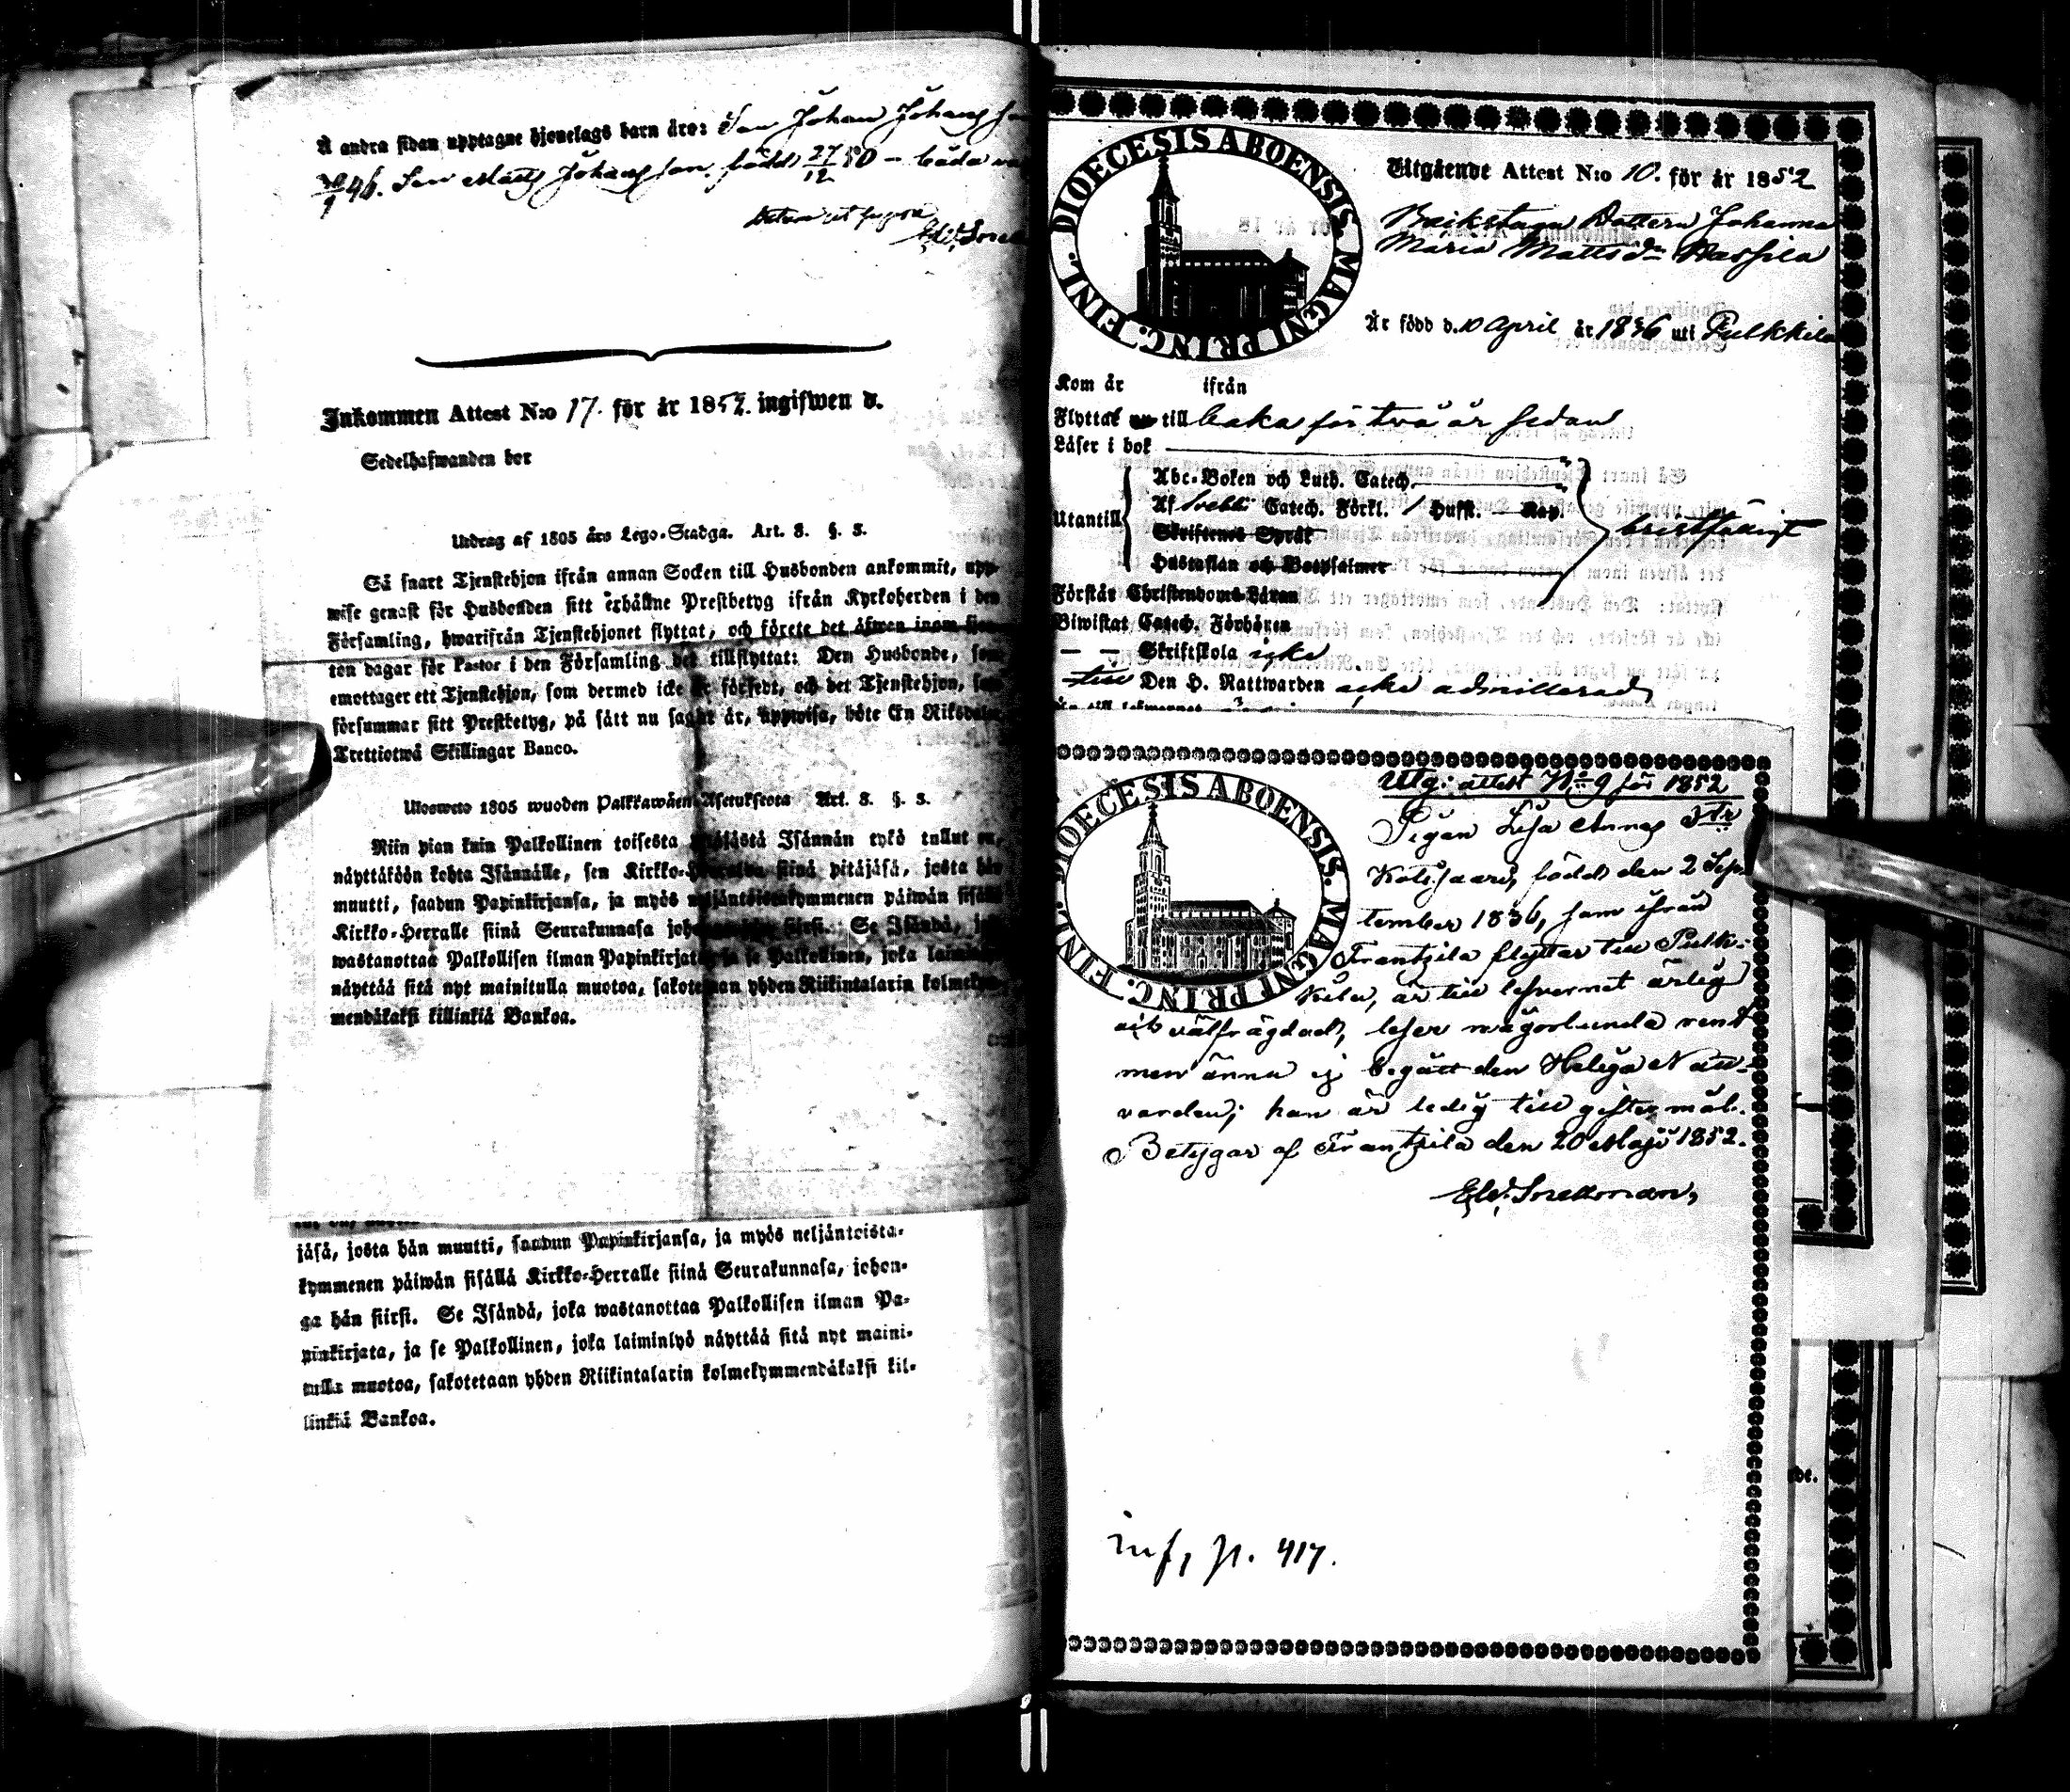 Å andra sidan upptagne hjonelags barn äro: Son Johan Johansson
46. Son Matts Johansson född 27/12 50 – båda
Datum ut supra
Inkommen Attest N:o 17. för år 1852. ingifwen d.
Sedelhafwanden bor
Utdrag af 1805 års Lego-Stadga. Art. 3. §. 3.
Så snart Tjenstehjon ifrån annan Socken till Husbonden ankommit, upp-
wise genast för Husbonden sitt erhållne Prestbetyg ifrån Kyrkoherden i den
Församling, hwarifrån Tjenstehjonet flyttat, och förete det äfwen inom fjor-
ton dagar för Pastor i den Församling det tillflyttat: Den Husbonde, som
emottager ett Tjenstehjon, som dermed icke är försedt, och det Tjenstehjon, som
försummar sitt Prestbetyg, på sätt nu sagdt är, uppwisa, böte En Riksdaler
Trettiotwå Skillingar Banco.
Ulosweto 1805 wuoden Palkkawäen Asetuksesta Art. 3. §. 3.
Niin pian kuin Palkollinen toisesta pitäjästä Isännän tykö tullut on,
näyttäköön kohta Isännälle, sen Kirkko-Herralta siinä pitäjäsä, josta hän
muutti, saadun Papinkirjansa, ja myös neljäntoistakymmenen päiwän sisällä
Kirkko-Herralle siinä Seurakunnasa johonga hän siirsi. Se Isändä, joka
wastanottaa Palkollisen ilman Papinkirjata, ja se Palkollinen, joka laiminlyö
näyttää sitä nyt mainitulla muotoa, sakotetaan yhden Riikintalarin kolmekym-
mendäkaksi killinkiä Bankoa.
jäsä, josta hän muutti, saadun Papinkirjansa, ja myös neljäntoista-
kymmenen päiwän sisällä Kirkko-Herralle siinä Seurakunnasa, johon-
ga hän siirsi. Se Isändä, joka wastanottaa Palkollisen ilman Pa-
pinkirjata, ja se Palkollinen, joka laiminlyö näyttää sitä nyt maini-
tulla muotoa, sakotetaan yhden Riikintalarin kolmekymmendäkaksi kil-
linkiä Bankoa.
DIOECESIS ABOENSIS. MAGNI PRINC. FINL.
Utgående Attest N:o 10. för år 1852
Dottern Johanna
Maria Mattsdr
Är född d. 10 April år 1836 uti Pulkkila
Kom år ifrån
Flyttat till baka för två år sedan
Läser i bok
Utantill
Abc-Boken och Luth. Catech.
Af Svebil. Catech. Förkl. 1 Hufst. Kap.
Skriftenes Språk
Hustaflan och Botpsalmer
bristfälligt
Förstår Christendoms-Läran
Biwistat Catech. Förhören
— — Skriftskola icke
till Den H. Nattwarden icke admitterad
DIOECESIS ABOENSIS. MAGNI PRINC. FINL.
Utg: attest No 9 för 1852
Pigan Lisa Annas dtr
Kotisaari, född den 2 Sep-
tember 1836, som ifrån
Frantzila flyttar till Pulk-
kila, är till lefvernet ärlig
och välfrägdad, läser någorlunda rent
men ännu ej begått den Heliga Natt-
varden; hon är ledig till giftermål.
Betygar af Frantzila den 20 Maji 1852.
El. Snellman,
inf, p. 417.